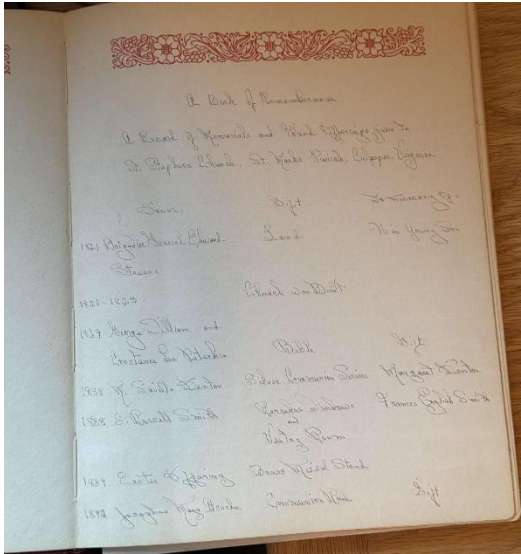 A Book of Remembrance
A Record of Memorials and Thank Offerings given to
St. Stephens Church, St. Marks Parish, Culpeper, Virginia
Donor Gift In Memory of
1821 Brigadier General Edward Land His Young Son
Stevens
1821-1823 Church was Built
George William and
Constance Lee Peterkin Bible Gift
1888 K. Saville Silver Communion Service Margaret
1888 E. Russell Smith windows Frances English Smith
and
Vesting Room
1889 Easter Offering Brass Missal Stand
1892 Josephine Communion Rail Gift